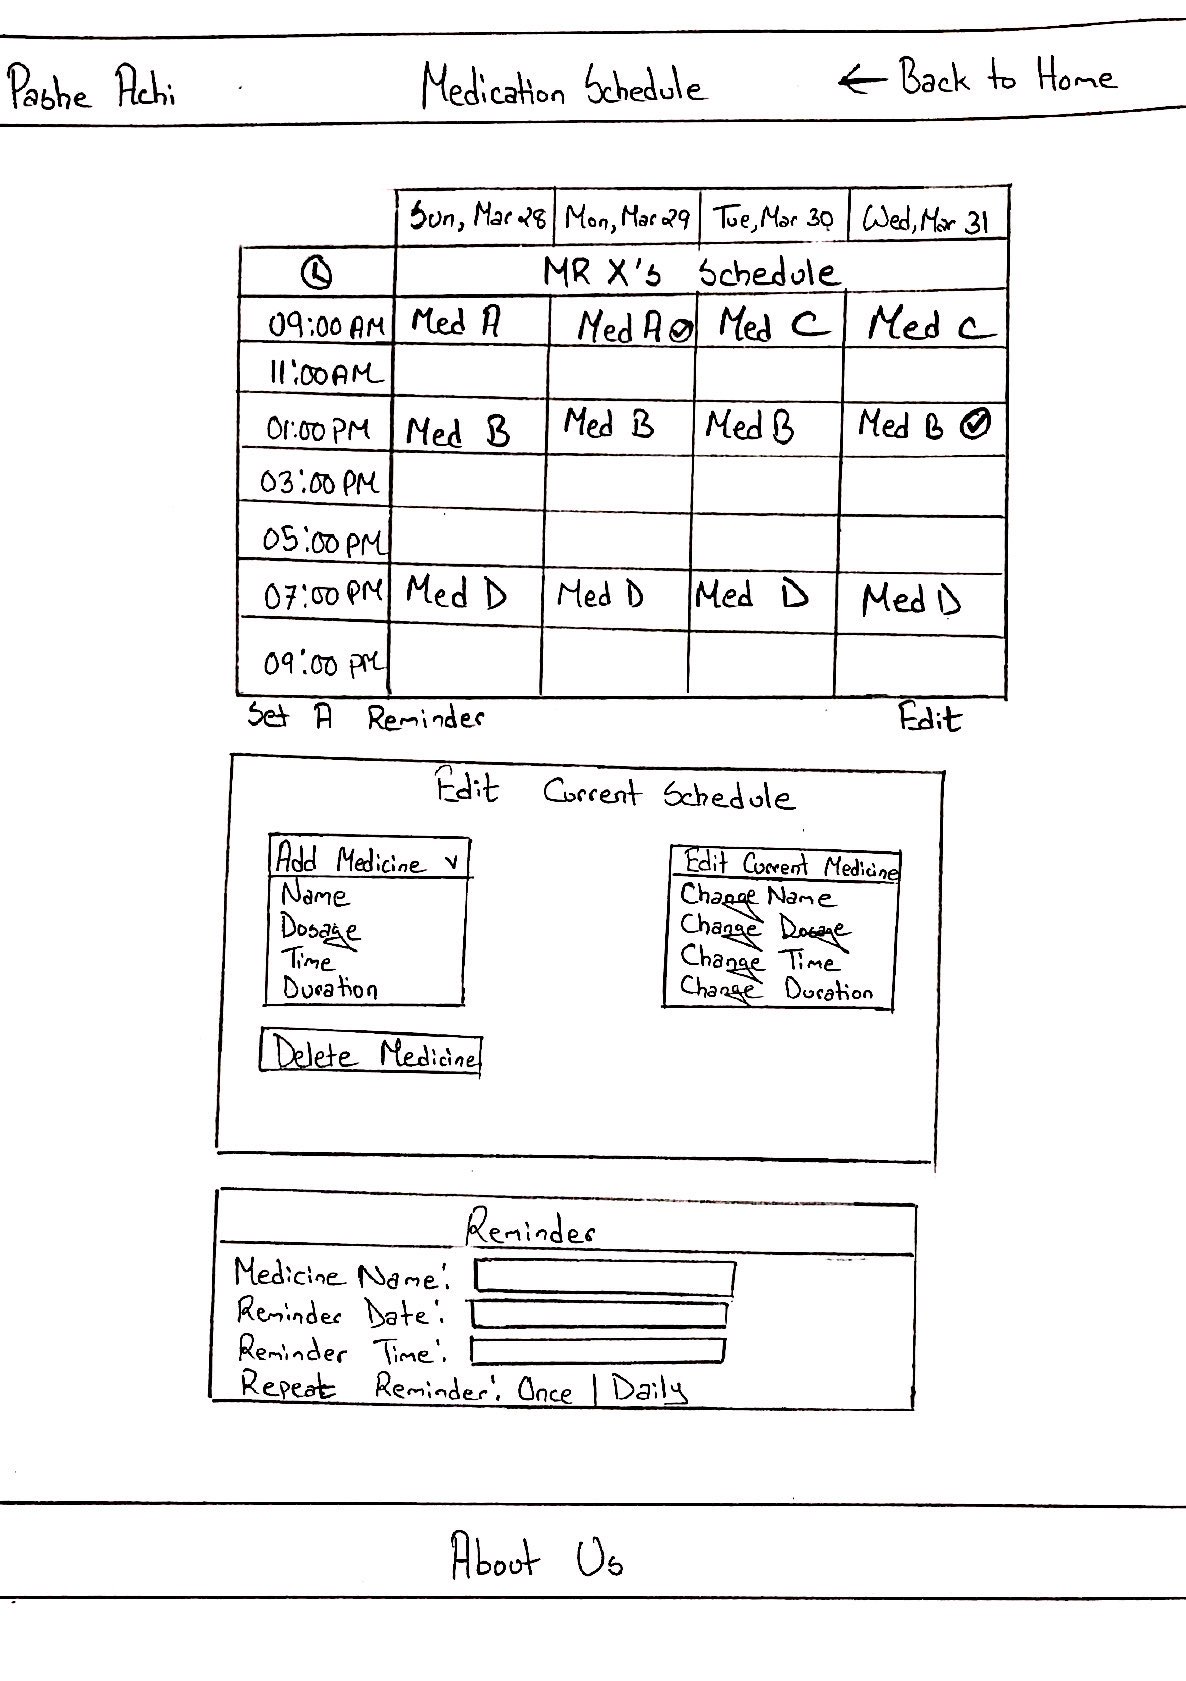 Pashe Achi
Medication Schedule
← Back to Home
Sun, Mar 28 Mon, Mar 29 Tue, Mar 30 Wed, Mar 31
MR X's Schedule
09:00 AM Med A Med A Med C Med C
11:00 AM
01:00 PM Med B Med B Med B Med B
03:00 PM
05:00 PM
07:00 PM Med D Med D Med D Med D
09:00 PM
Set A Reminder Edit
Edit Current Schedule
Add Medicine v
Name
Dosage
Time
Duration
Delete Medicine
Edit Current Medicine
Change Name
Change Dosage
Change Time
Change Duration
Reminder
Medicine Name:
Reminder Date:
Reminder Time:
Repeat Reminder: Once | Daily
About Us